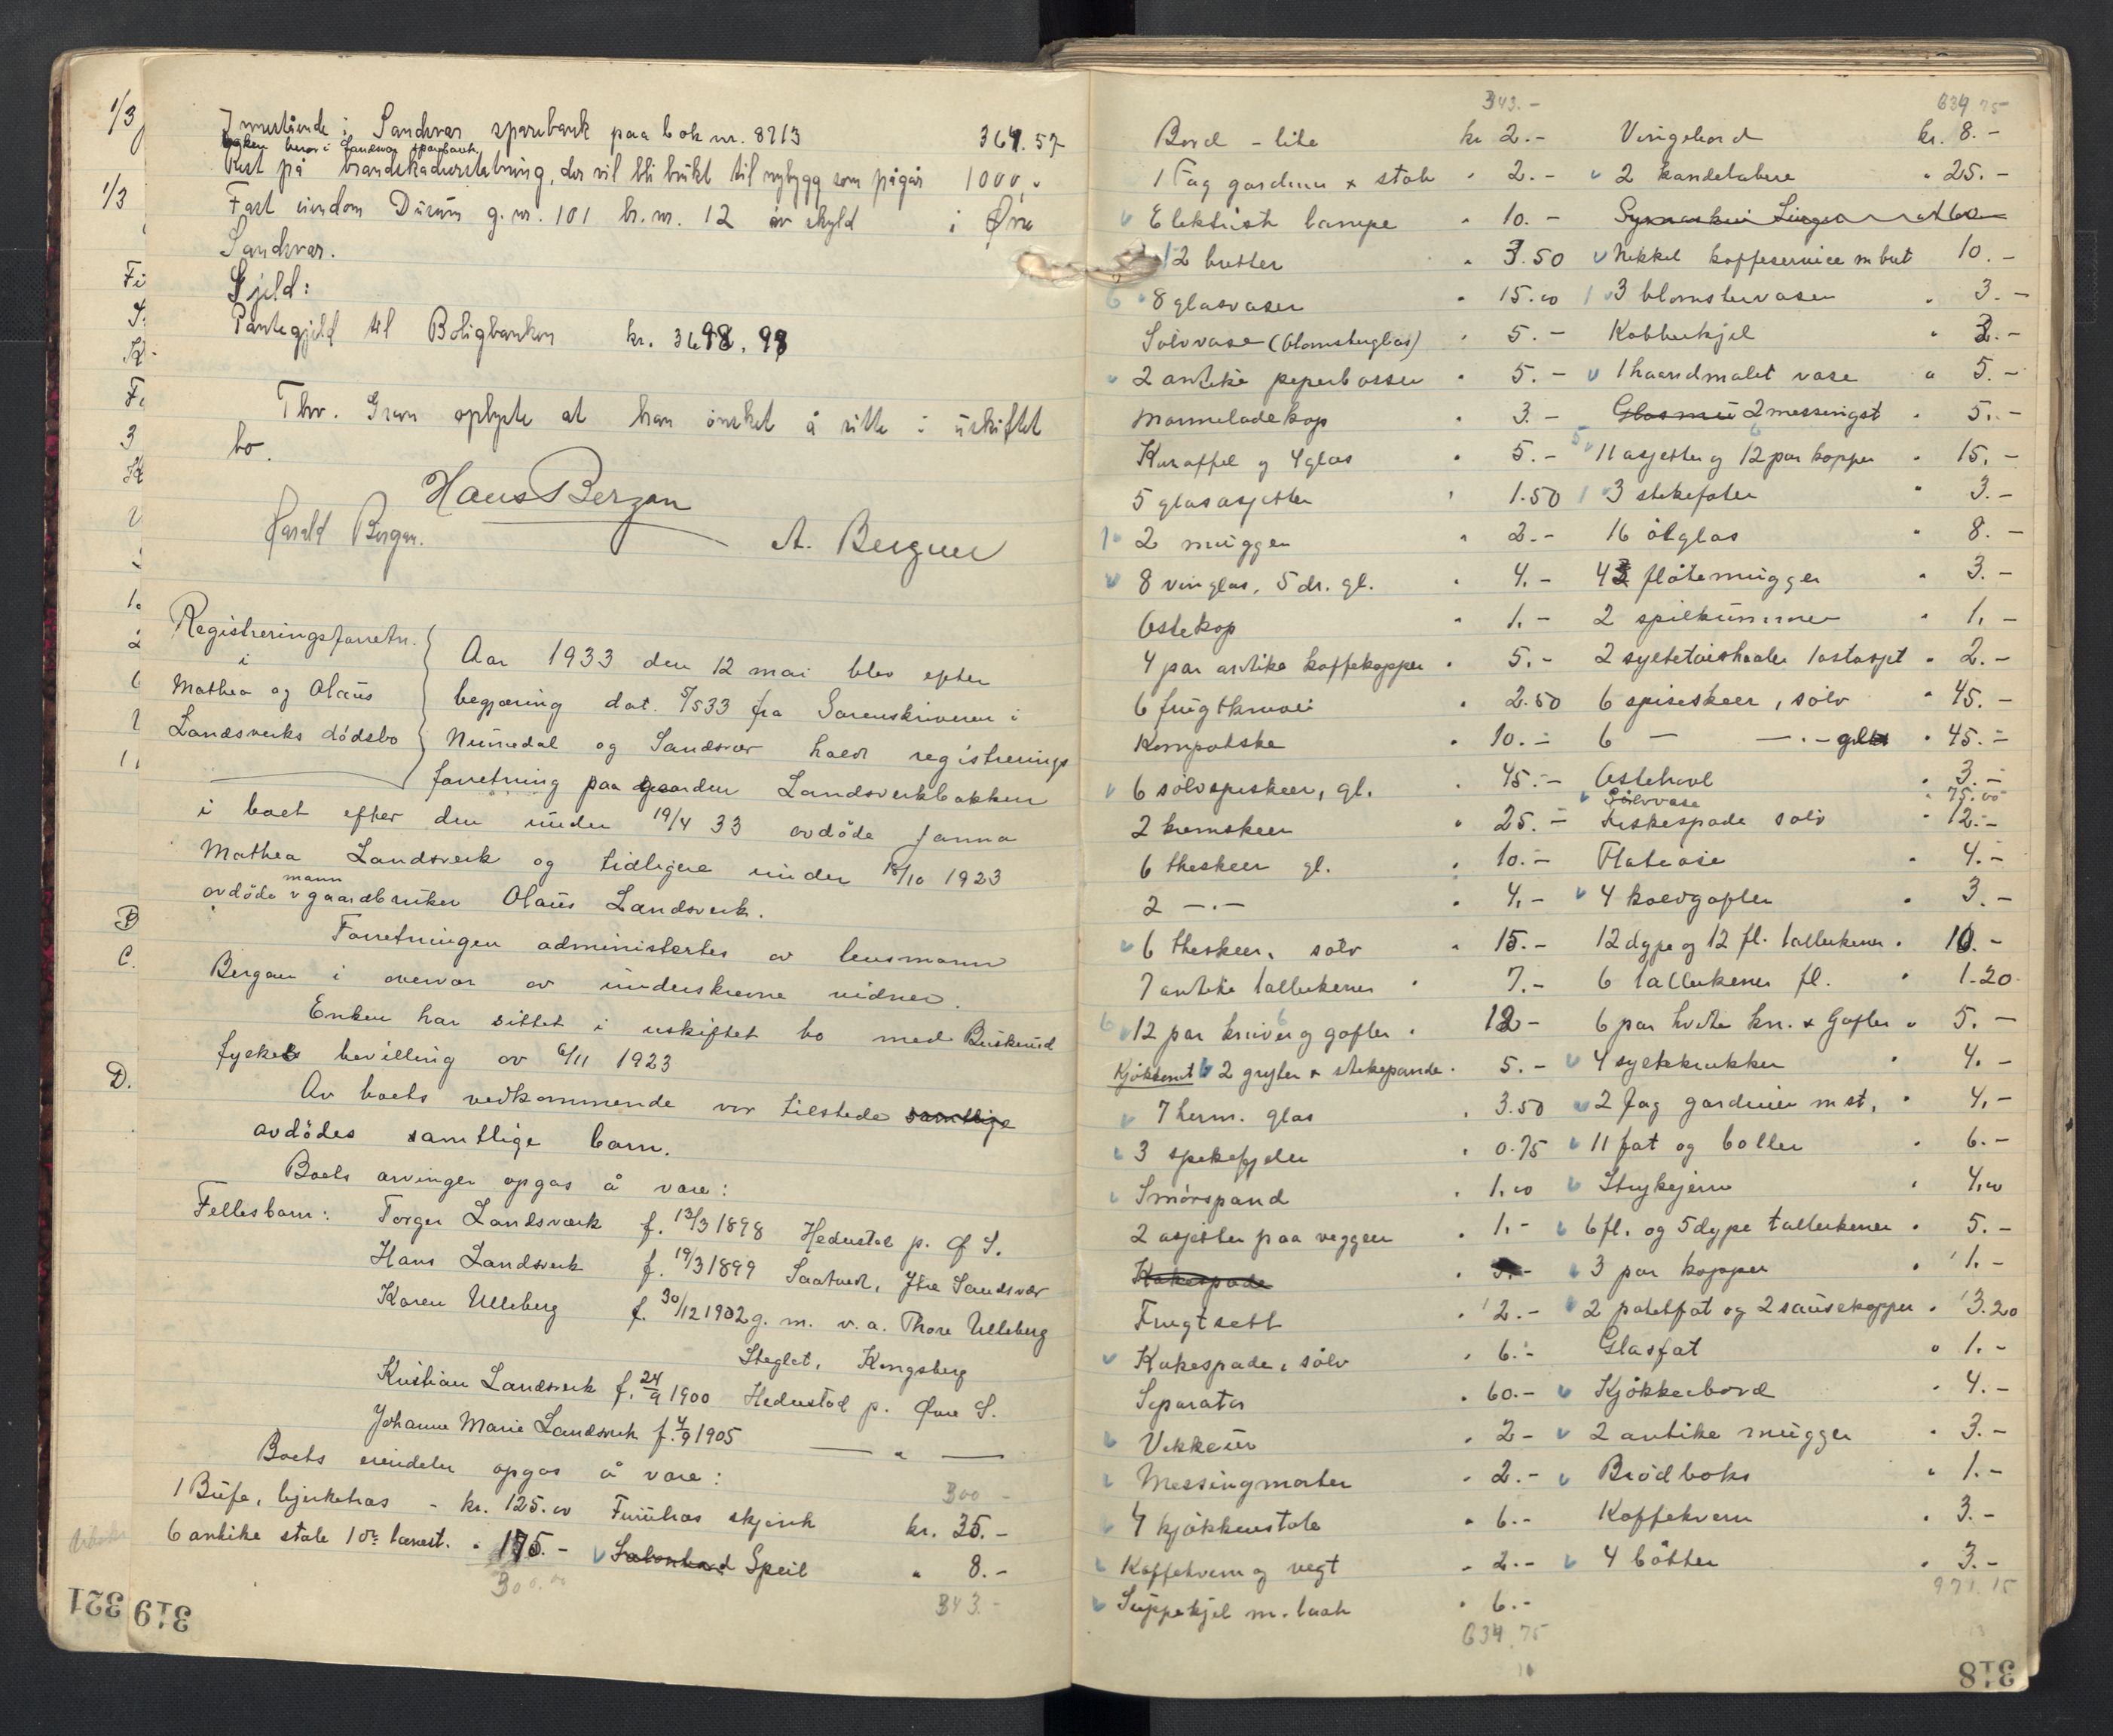 1/3
Innestående i Sandsvær sparebank paa bok nr. 8213 364.57
boken beror i Sandsvær sparebank
Rest på brandskadeerstatning, der vil bli brukt til nybygg som pågår 1000,-
1/3
Fast eiendom Durum g.nr. 101 br.nr. 12 av skyld i Øvre
Sandsvær.
Gjeld:
Pantegjeld til Boligbanken kr. 3698,98
Thv. Gran oplyste at han ønsket å sitte i uskiftet
bo.
Hans Bergan
Harald Bergan. A. Bergan
Registreringsforretn.
i
Mathea og Olaus
Landsverks dødsbo
Aar 1933 den 12 mai blev efter
begjæring dat. 5/5 33 fra Sorenskriveren i
Numedal og Sandsvær holdt registrerings
forretning paa gaarden Landsverkbakken
i boet efter den under 19/4 33 avdöde Janna
Mathea Landsverk og tidligere under 18/10 1923
avdöde mann v gaardbruker Olaus Landsverk.
Forretningen administertes av lensmann
Bergan i overvær av underskrevne vidner.
Enken har sittet i uskiftet bo med Buskerud
fylkes bevilling av 6/11 1923
Av boets vedkommende var tilstede samtlige
avdödes samtlige barn.
Boets arvinger opgas å være:
Fellesbarn: Torger Landsværk f. 13/3 1898 Hedenstad p. Ø S.
Hans Landsverk f. 19/3 1899 Saatvedt, Ytre Sandsvær
Karen Ulleberg f. 30/12 1902 g. m. v.a. Thore Ulleberg
Steglet, Kongsberg
Kristian Landsverk f. 24/9 1900 Hedenstad p. Øvre S.
Johanne Marie Landsverk f. 4/9 1905 — " —
Boets eiendeler opgas å være:
300 -
1 Bufe, bjerketræs - kr. 125.00 Furutræs skjenk kr. 35.-
6 antike stole 1 do lænest. " 175.- Salonbord Speil " 8.-
300.00 343.-
321 319
343.- 634 75
Bord - lite kr 2.- Veringsbord kr. 8.-
1 Fag gardiner + stol " 2.- 2 kandelabere " 25.-
Elektrisk lampe " 10.- Symaskin Singer
12 bretter " 3.50 Nikkel kaffeservice m bret 10.-
8 glasvaser " 15.00 3 blomstervaser " 3.-
Sølvvase (blomsterglas) " 5.- Kobberkjel " 3.-
2 antike peperbosser " 5.- 1 haandmalet vase " 5.-
Marmeladekop " 3.- 2 messingst " 5.-
Karaffel og 4 glas " 5.- 11 asjetter og 12 par kopper " 15.-
5 glasasjetter " 1.50 3 stekefater " 3.-
2 mugger " 2.- 16 ölglas " 8.-
8 vinglas, 5 dr. gl. " 4.- 43 flötemugger " 3.-
Ostekop " 1.- 2 spilkummer " 1.-
4 par antike kaffekopper " 5.- 2 syltetøiskaaler 1 ostasjet " 2.-
6 frugtkniver " 2.50 6 spiseskeer, sølv " 45.-
Kompotske " 10.- 6 — —.— gl " 45.-
6 sølvspiskeer, gl. " 45.- Ostehøvl " 3.-
Sølvvase " 75.00
2 kremskeer " 25.- Fiskespade sølv " 12.-
6 theskeer gl. " 10.- Flateøse " 4.-
2 —.— " 4.- 4 koldgafler " 3.-
6 theskeer, sølv " 15.- 12 dype og 12 fl. tallerkener " 10.-
7 antike tallerkener " 7.- 6 tallerkener fl. " 1.20
12 par kniver og gafler " 12.- 6 par hvite kn. + Gafler " 5.-
Kjøkkenet 2 gryter + stekepande " 5.- 4 syltekrukker " 4.-
7 herm. glas " 3.50 2 fag gardiner m st. " 4.-
3 spekefjeler " 0.75 11 fat og boller " 6.-
Smörspand " 1.00 Strykejern " 4.00
2 asjetter paa veggen " 1.- 6 fl. og 5 dype tallerkener " 5.-
Kakespade 3 par kopper " 1.-
Frugtsett " 2.- 2 potetfat og 2 sausekopper " 3.20
Kakespade, sølv " 6.- Glasfat " 1.-
Separator " 60.- Kjökkenbord " 4.-
Vekkeur " 2.- 2 antike mugger " 3.-
Messingmorter " 2.- Brödboks " 1.-
4 kjøkkenstole " 6.- Kaffekvern " 3.-
Kaffekvern og vegt " 2.- 4 bötter " 3.-
Suppekjel m. laak " 6.- 971.15
634.75
318